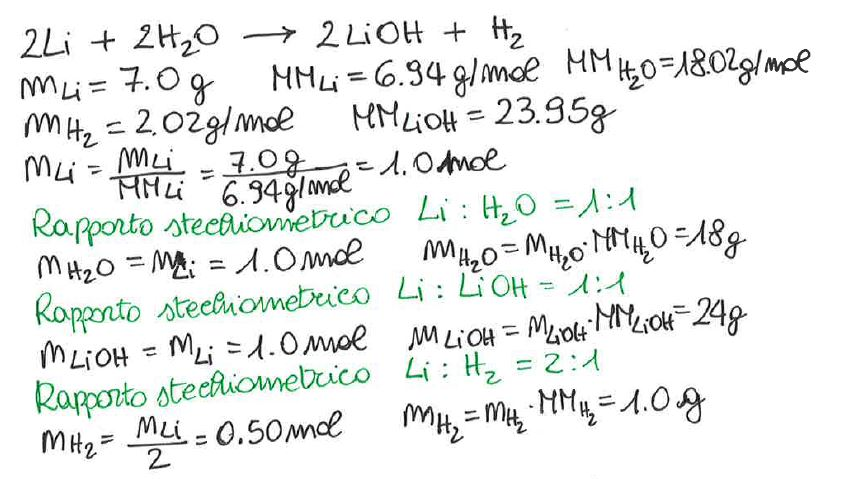 2Li + 2H₂O → 2LiOH + H₂
mLi = 7.0 g MMLi = 6.94 g/mol MMH₂O = 18.02 g/mol
mH₂ = 2.02 g/mol MMLiOH = 23.95 g
nLi = mLi/MMLi = 7.0 g/6.94 g/mol = 1.0 mol
Rapporto stechiometrico Li : H₂O = 1:1
nH₂O = nLi = 1.0 mol mH₂O = nH₂O · MMH₂O = 18 g
Rapporto stechiometrico Li : LiOH = 1:1
nLiOH = nLi = 1.0 mol mLiOH = nLiOH · MMLiOH = 24 g
Rapporto stechiometrico Li : H₂ = 2:1
nH₂ = nLi/2 = 0.50 mol mH₂ = nH₂ · MMH₂ = 1.0 g